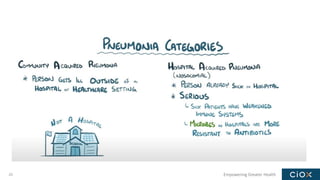 PNEUMONIA CATEGORIES
COMMUNITY ACQUIRED PNEUMONIA
* PERSON GETS ILL OUTSIDE OF A
HOSPITAL OR HEALTHCARE SETTING
NOT A HOSPITAL
HOSPITAL ACQUIRED PNEUMONIA
(NOSOCOMIAL)
* PERSON ALREADY SICK IN HOSPITAL
* SERIOUS
↳ SICK PATIENTS HAVE WEAKENED
IMMUNE SYSTEMS
↳ MICROBES in HOSPITALS ARE MORE
RESISTANT to ANTIBIOTICS
Empowering Greater Health
CIOX